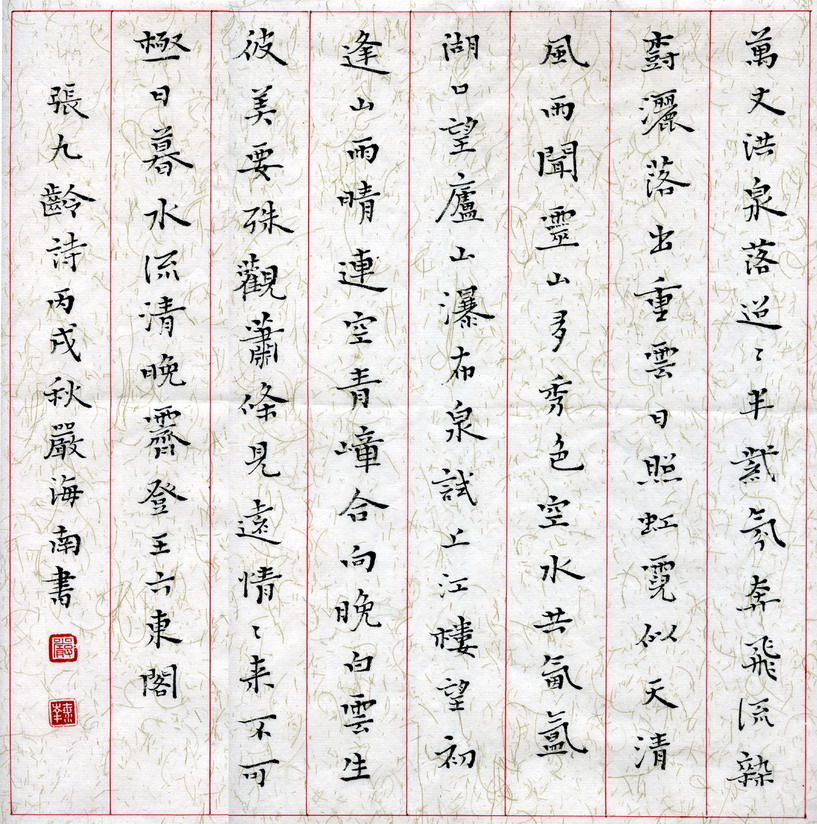 萬丈洪泉落迢〻半紫氛奔飛流雜
樹灑落出重雲日照虹霓似天清
風雨聞靈山多秀色空水共氤氳
湖口望廬山瀑布泉試上江樓望初
逢山雨晴連空青嶂合向晚白雲生
彼美要殊觀蕭條見遠情〻来不可
極日暮水流清晚霽登王六東閣
張九齡詩丙戌秋嚴海南書
嚴